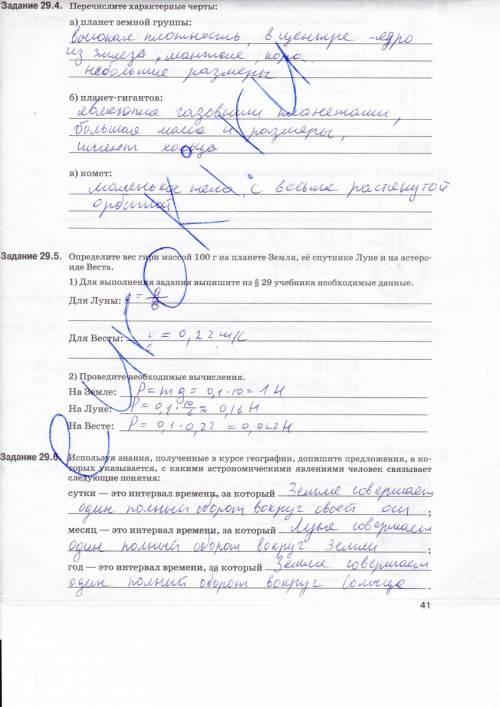 Задание 29.4. Перечислите характерные черты:
а) планет земной группы:
высокая плотность, в центре - ядро
из железа, мантия, кора
небольшие размеры
б) планет-гигантов:
являются газовыми планетами,
большая масса и размеры,
имеют кольца
в) комет:
маленькое тело, с весьма растянутой
орбитой
Задание 29.5. Определите вес гири массой 100 г на планете Земля, её спутнике Луне и на астеро-
иде Веста.
1) Для выполнения задания выпишите из § 29 учебника необходимые данные.
Для Луны:
Для Весты: = 0,22 м/с
2) Проведите необходимые вычисления.
На Земле: P = mg = 0,1·10 = 1 Н
На Луне: P = 0,1·10/6 = 0,16 Н
На Весте: P = 0,1·0,22 = 0,022 Н
Задание 29.6. Используя знания, полученные в курсе географии, допишите предложения, в ко-
торых указывается, с какими астрономическими явлениями человек связывает
следующие понятия:
сутки — это интервал времени, за который Земля совершает
один полный оборот вокруг своей оси ;
месяц — это интервал времени, за который Луна совершает
один полный оборот вокруг Земли ;
год — это интервал времени, за который Земля совершает
один полный оборот вокруг Солнца .
41